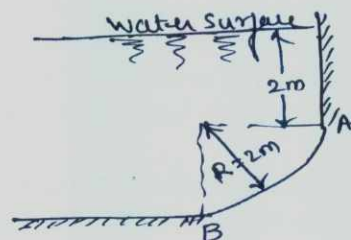 Water Surface
2m
A
R=2m
B